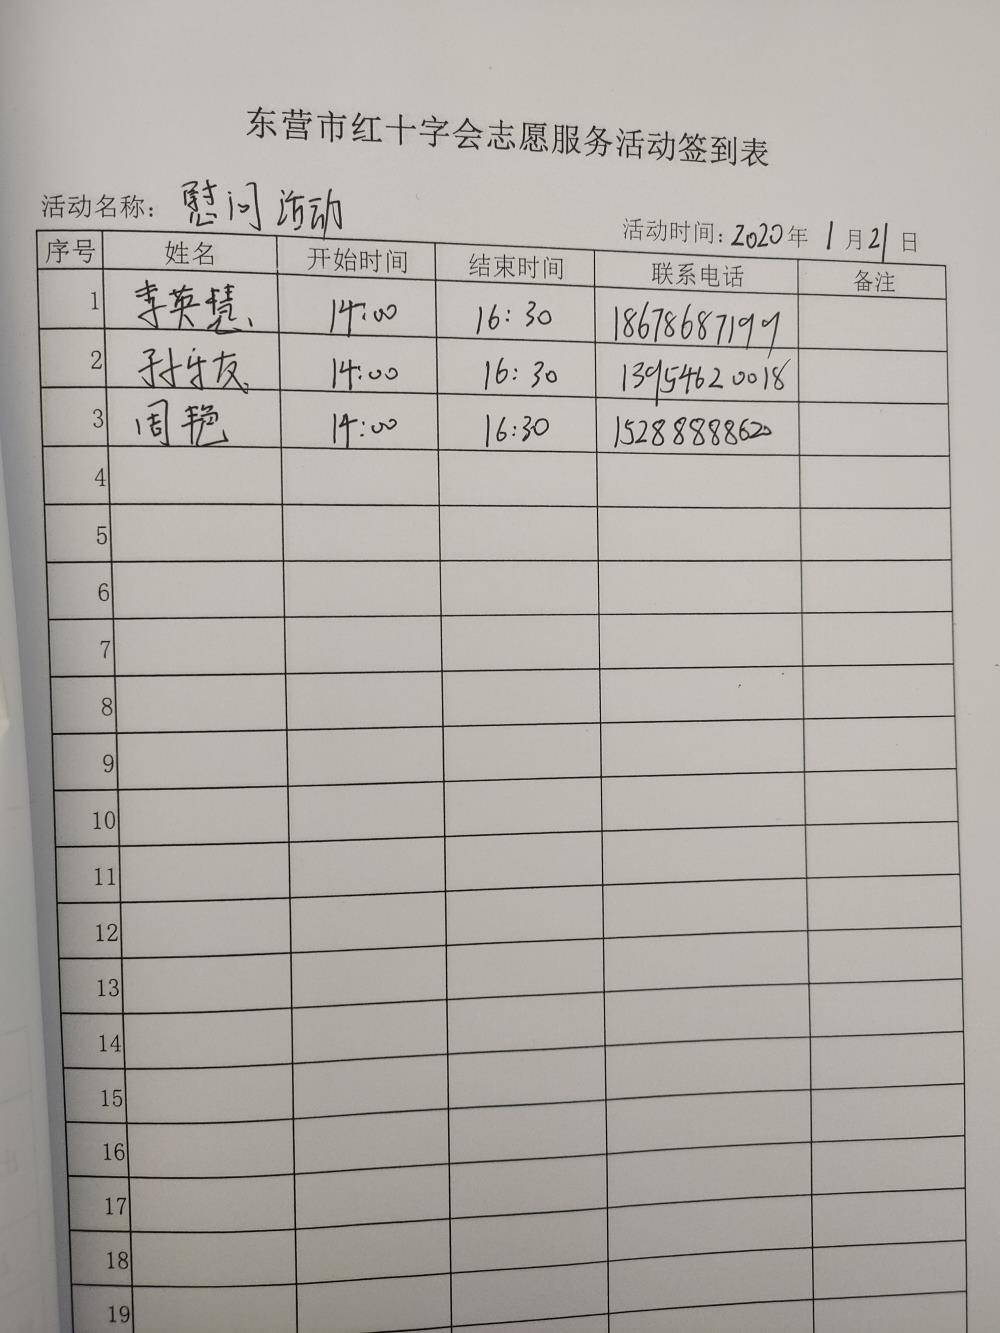 东营市红十字会志愿服务活动签到表
活动名称：慰问活动 活动时间：2020年 1月21日
序号 姓名 开始时间 结束时间 联系电话 备注
1 李英慧 14:00 16:30 18678687199
2 孙乐友 14:00 16:30 13954620018
3 周艳 14:00 16:30 15288888620
4
5
6
7
8
9
10
11
12
13
14
15
16
17
18
19